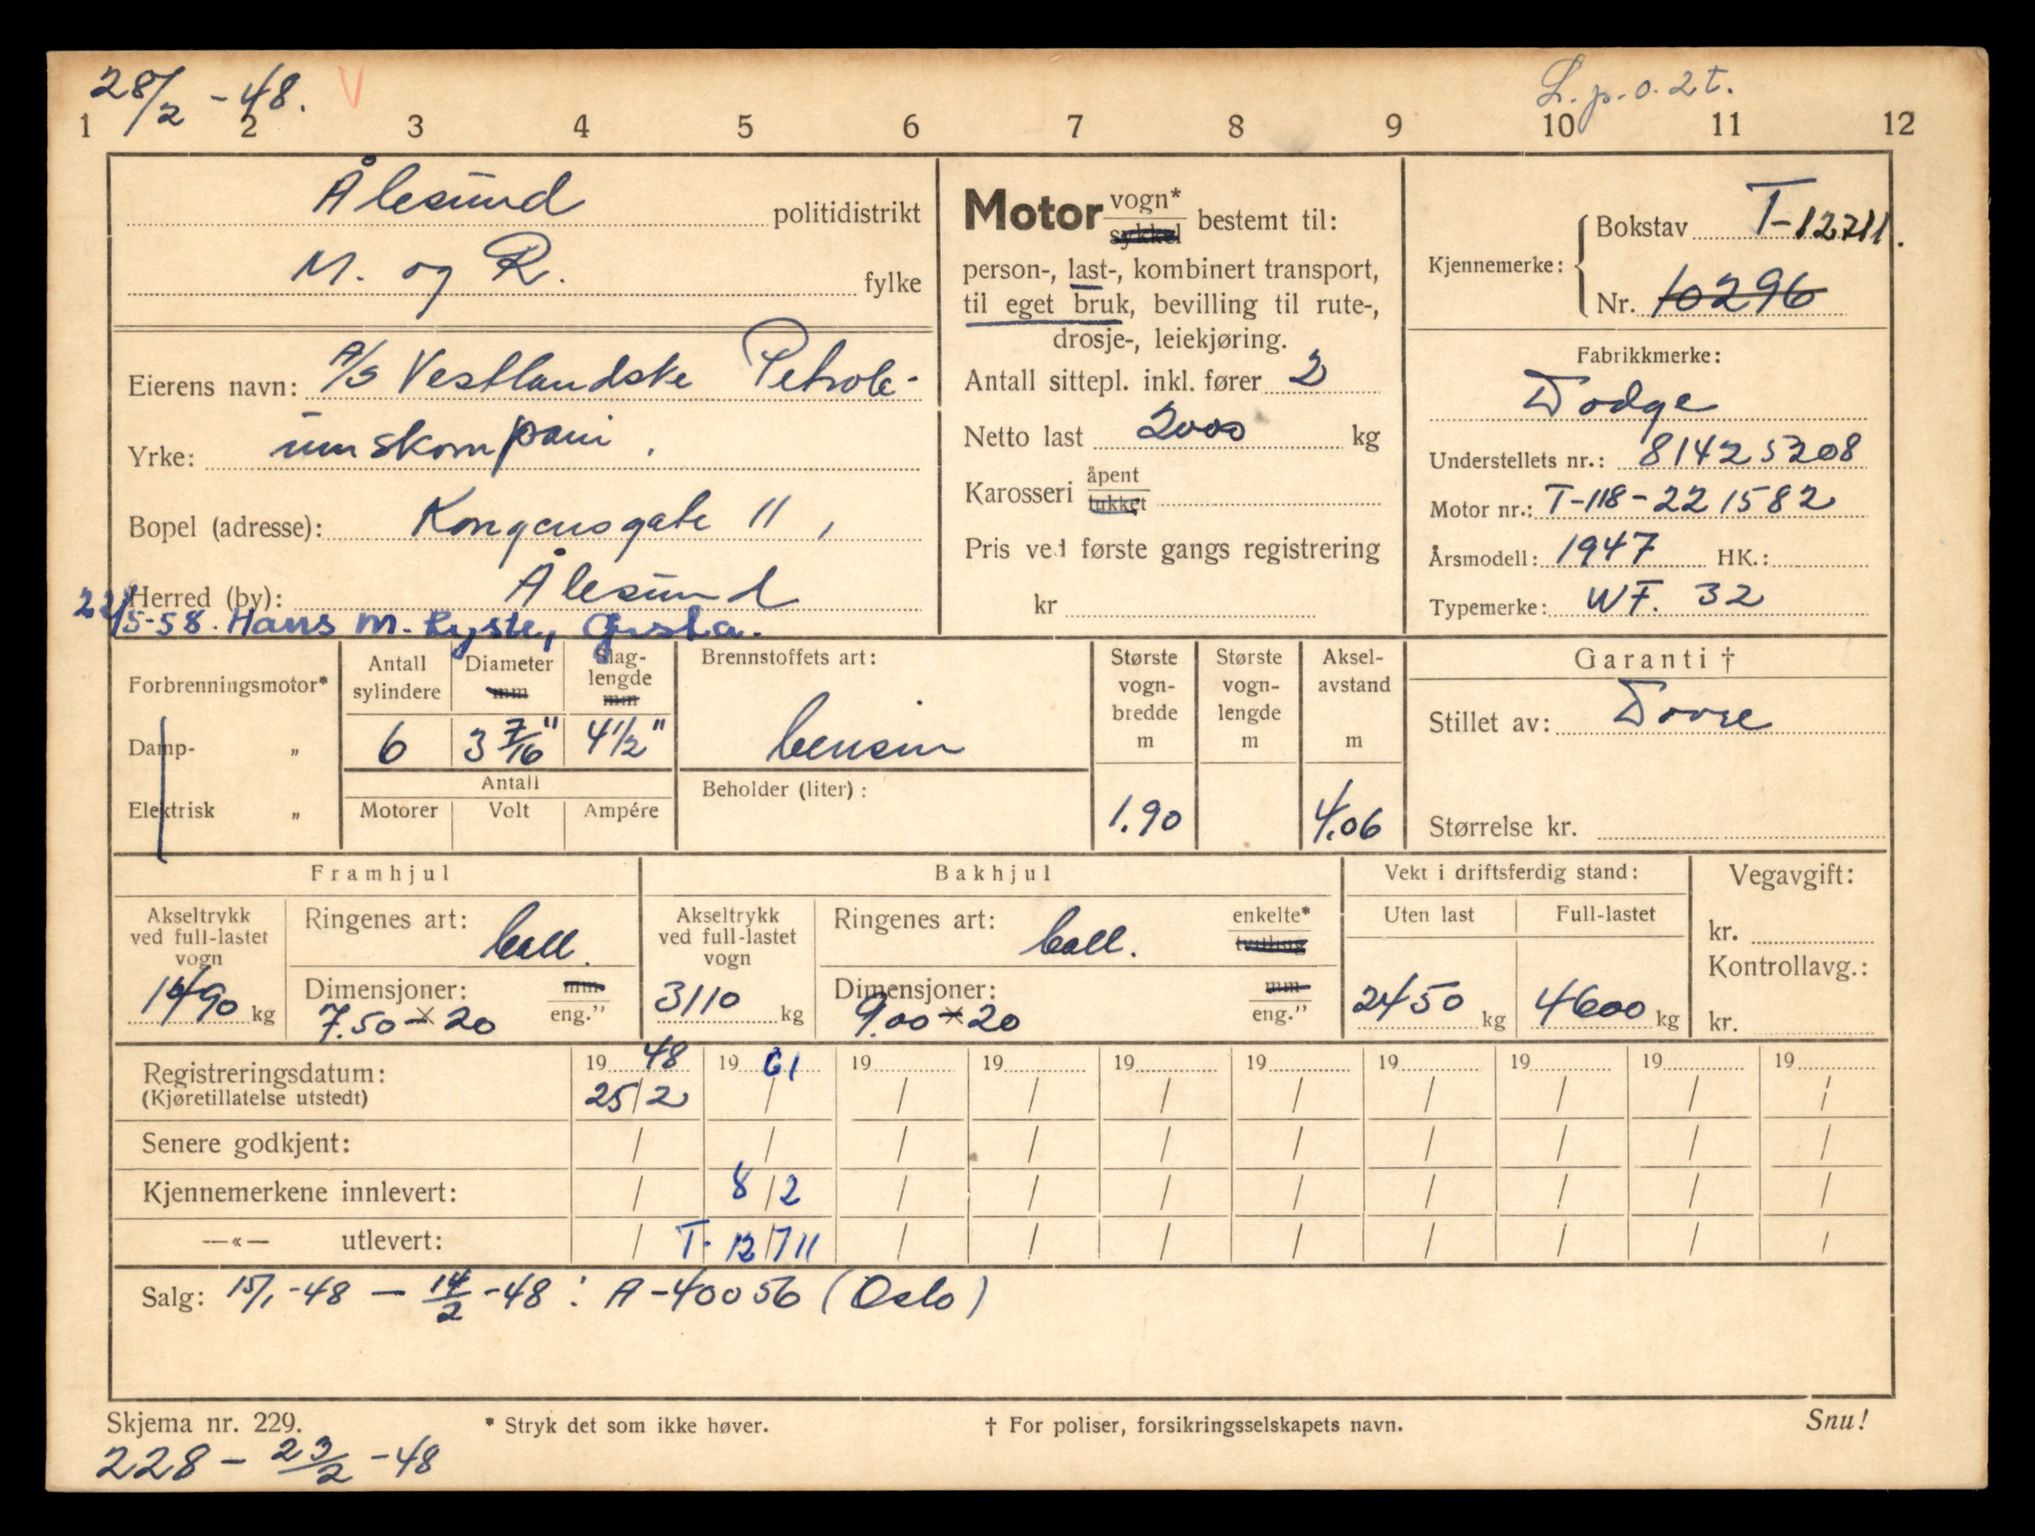 28/2 - 48. V
L. p. o. 2t.
1 2 3 4 5 6 7 8 9 10 11 12
Ålesund politidistrikt
M. og R. fylke
Eierens navn: A/S Vestlandske Petrole-
Yrke: umskompani.
Bopel (adresse): Kongensgate 11,
Herred (by): Ålesund
22/5-58. Hans M. Ryste, Ørsta.
Motor vogn* sykkel bestemt til:
person-, last-, kombinert transport,
til eget bruk, bevilling til rute-,
drosje-, leiekjøring.
Antall sittepl. inkl. fører 2
Netto last 2000 kg
Karosseri åpent lukket
Pris ved første gangs registrering
kr
Kjennemerke: Bokstav T-12711.
Nr. 10296
Fabrikkmerke:
Dodge
Understellets nr.: 81425208
Motor nr.: T-118-221582
Årsmodell: 1947 HK.:
Typemerke: WF. 32
Forbrenningsmotor*
Damp- „
Elektrisk „
Antall sylindere
6
Diameter mm
3 7/16"
Slaglengde mm
4 1/2"
Antall
Motorer Volt Ampére
Brennstoffets art:
bensin
Beholder (liter):
Største vogn-bredde m
1.90
Største vogn-lengde m
Aksel-avstand m
4.06
Garanti †
Stillet av: Dovre
Størrelse kr.
Framhjul
Akseltrykk ved full-lastet vogn
1490 kg
Ringenes art: ball.
Dimensjoner: mm eng."
7.50 x 20
Bakhjul
Akseltrykk ved full-lastet vogn
3110 kg
Ringenes art: ball. enkelte* tvilling
Dimensjoner: mm eng."
9.00 x 20
Vekt i driftsferdig stand:
Uten last Full-lastet
2450 kg 4600 kg
Vegavgift:
kr.
Kontrollavg.:
kr.
Registreringsdatum: 19 48 19 61 19 19 19 19 19 19 19 19
(Kjøretillatelse utstedt) 25/2 / / / / / / / / /
Senere godkjent: / / / / / / / / / /
Kjennemerkene innlevert: / 8/2 / / / / / / / /
—«— utlevert: / T-12711 / / / / / / / /
Salg: 15/1-48 — 14/2-48: A-40056 (Oslo)
Skjema nr. 229. * Stryk det som ikke høver. † For poliser, forsikringsselskapets navn. Snu!
228 - 23/2 - 48